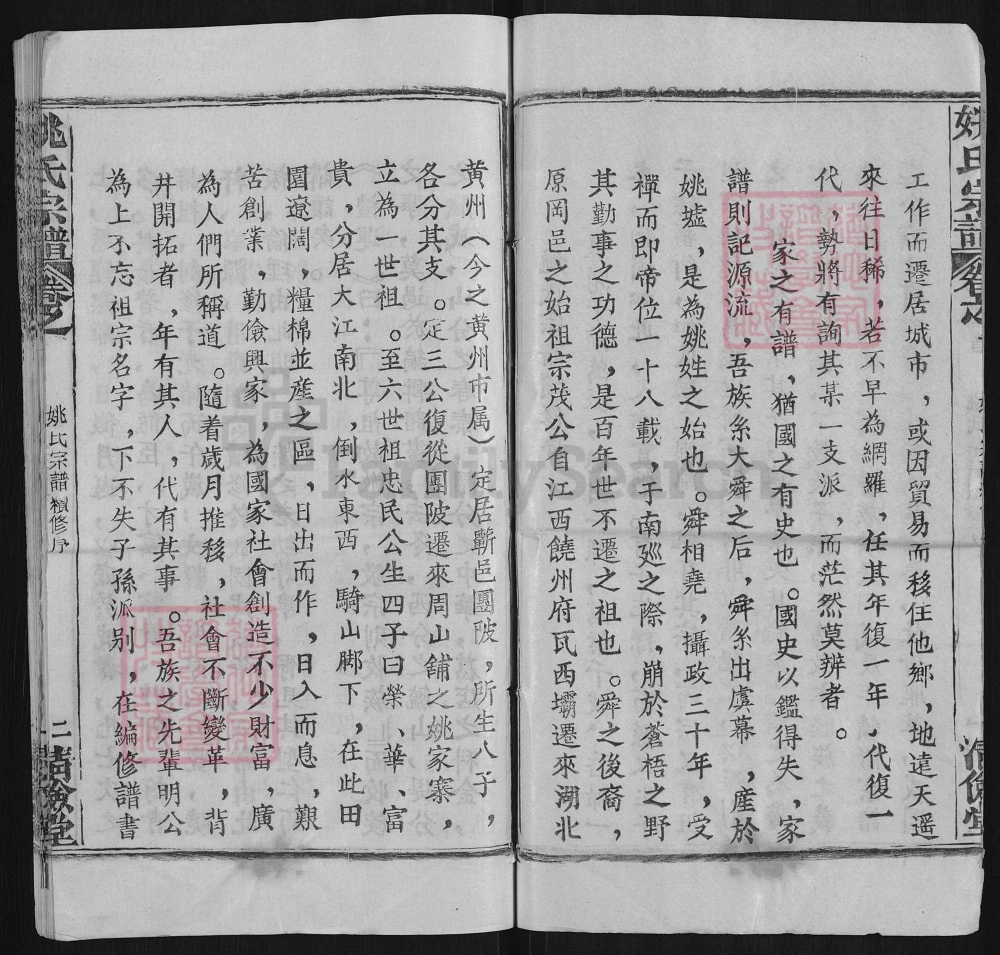 姚氏宗譜
工作而遷居城市，或因貿易而移住他鄉，地遠天遥
來往日稀，若不早為網羅，任其年復一年，代復一
代，勢將有詢其某一支派，而茫然莫辨者。
家之有譜，猶國之有史也。國史以鑑得失，家
譜則記源流，吾族糸大舜之后，舜糸出虞幕，產於
姚墟，是為姚姓之始也。舜相堯，攝政三十年，受
禪而即帝位一十八載，于南廵之際，崩於蒼梧之野
其勤事之功德，是百年世不遷之祖也。舜之後裔，
原岡邑之始祖宗茂公自江西饒州府瓦西壩遷來湖北
黄州（今之黄州市属）定居蘄邑團陂，所生八子，
各分其支。定三公復從團陂遷來周山鋪之姚家寨，
立為一世祖。至六世祖忠民公生四子曰榮、華、富
貴，分居大江南北，倒水東西，騎山脚下，在此田
園遼闊，糧棉並產之區，日出而作，日入而息，艱
苦創業，勤儉興家，為國家社會創造不少財富，廣
為人們所稱道。隨着歲月推移，社會不斷變革，背
井開拓者，年有其人，代有其事。吾族之先輩明公
為上不忘祖宗名字，下不失子孫派别，在編修譜書
姚氏宗譜
卷之
姚氏宗譜 續修序
二